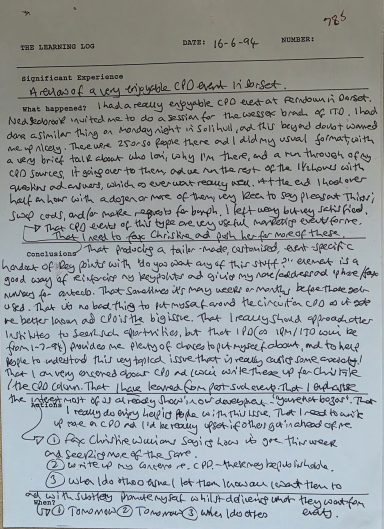 785
THE LEARNING LOG DATE: 16-6-94 NUMBER:
Significant Experience
A review of a very enjoyable CPD event in Dorset.
What happened? I had a really enjoyable CPD event at Ferndown in Dorset.
invited me to do a session for the Wessex branch of ITD. I had
done a similar thing on Monday night in Solihull, and this beyond doubt warmed
me up nicely. There were 25 or so people there and I did my usual format, with
a very brief talk about who I am, why I'm there, and a run through of my
CPD sources, it going over to them, and we run the rest of the 1½ hours with
questions and answers, which as ever went really well. At the end I had over
half an hour with a dozen or more of them very keen to say pleasant things,
swap cards, and/or make requests for bumph. I left very satisfied.
That CPD events of this type are very useful events for me.
That I need to fax Christine and push her for more of these
Conclusions That producing a tailor-made, customised, event specific
handout of key points with the "do you want any of this stuff?" element is a
good way of reinforcing my key points and giving my name/address and phone/fax
number for contacts. That sometimes it's many weeks or months before these get
used. That it's no bad thing to put myself around the circuit on CPD as it gets
me better known and CPD is the big issue. That I really should approach other
institutes to search such opportunities, but that IPD (as IPM/ITD will be
from 1-7-94) provides me plenty of chances to put myself about, and to help
people to understand this very topical issue that is really causing some anxiety!
That I am very concerned about CPD and write these up for Christine
/the CPD column. That I have learned from past such events. That I emphasise
the interest most of us already show in our own development
Actions I really do enjoy helping people with this issue. That I need to write
up more on CPD and I'd be really upset if others get in ahead of me.
① Fax Christine Williams saying how it's gone this week
and seeking more of the same.
② Write up my concerns re. CPD - these may be publishable.
③ When I do other events I let them know I want them to
and with subtlety promote myself whilst delivering what they want from
When? events.
① Tomorrow ② Tomorrow ③ When I do others